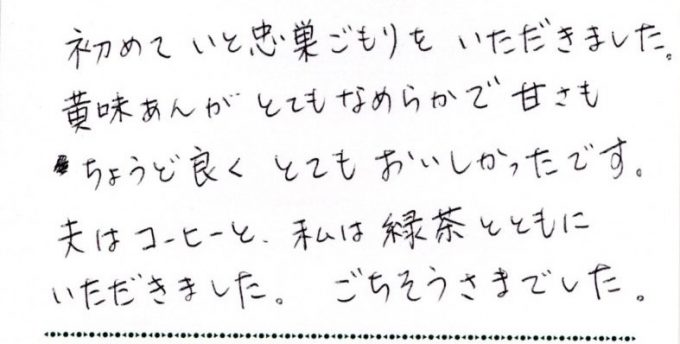 初めて いと忠巣ごもりを いただきました。
黄味あんが とてもなめらかで 甘さも
ちょうど良く とても おいしかったです。
夫は コーヒーと、私は 緑茶とともに
いただきました。 ごちそうさまでした。